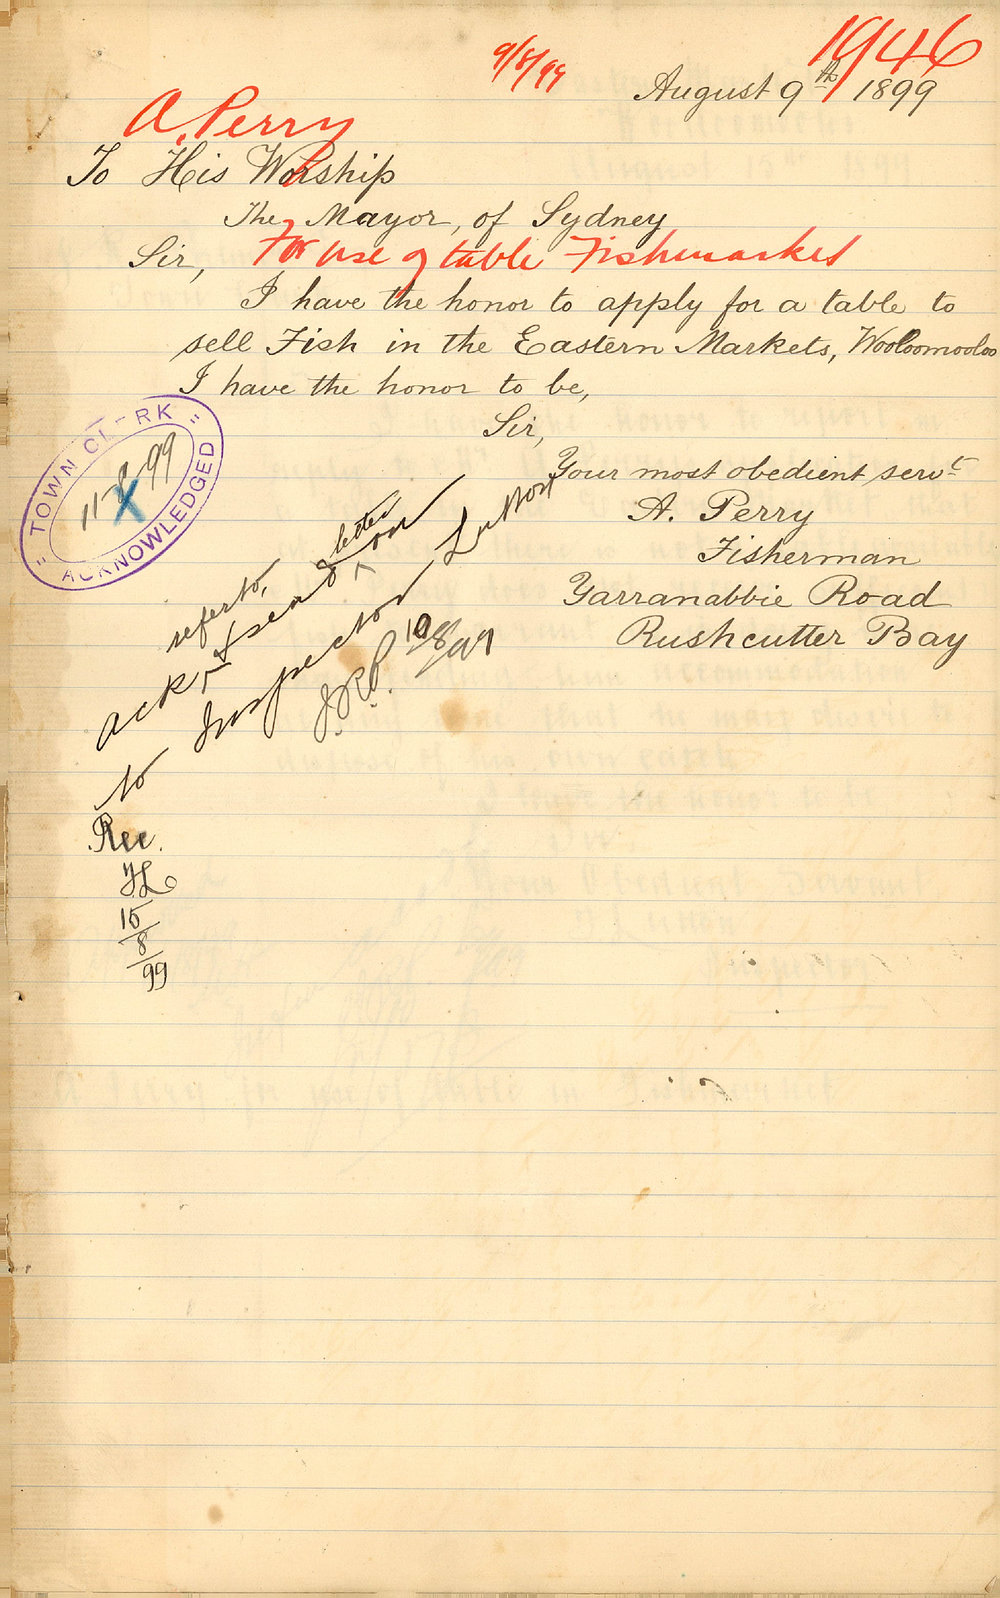 1946
9/8/99
August 9th 1899
A. Perry
To His Worship
The Mayor, of Sydney
For use of table Fishmarket
Sir,
I have the honor to apply for a table to
sell Fish in the Eastern Markets, Wooloomooloo
I have the honor to be,
Sir,
Your most obedient servt
A. Perry
Fisherman
Yarranabbie Road
Rushcutter Bay
"TOWN CLERK"
11-8-99
ACKNOWLEDGED
refer to,
Ack & send letter on
to Inspector Lutton
10/8/99
Rec.
15/8/99